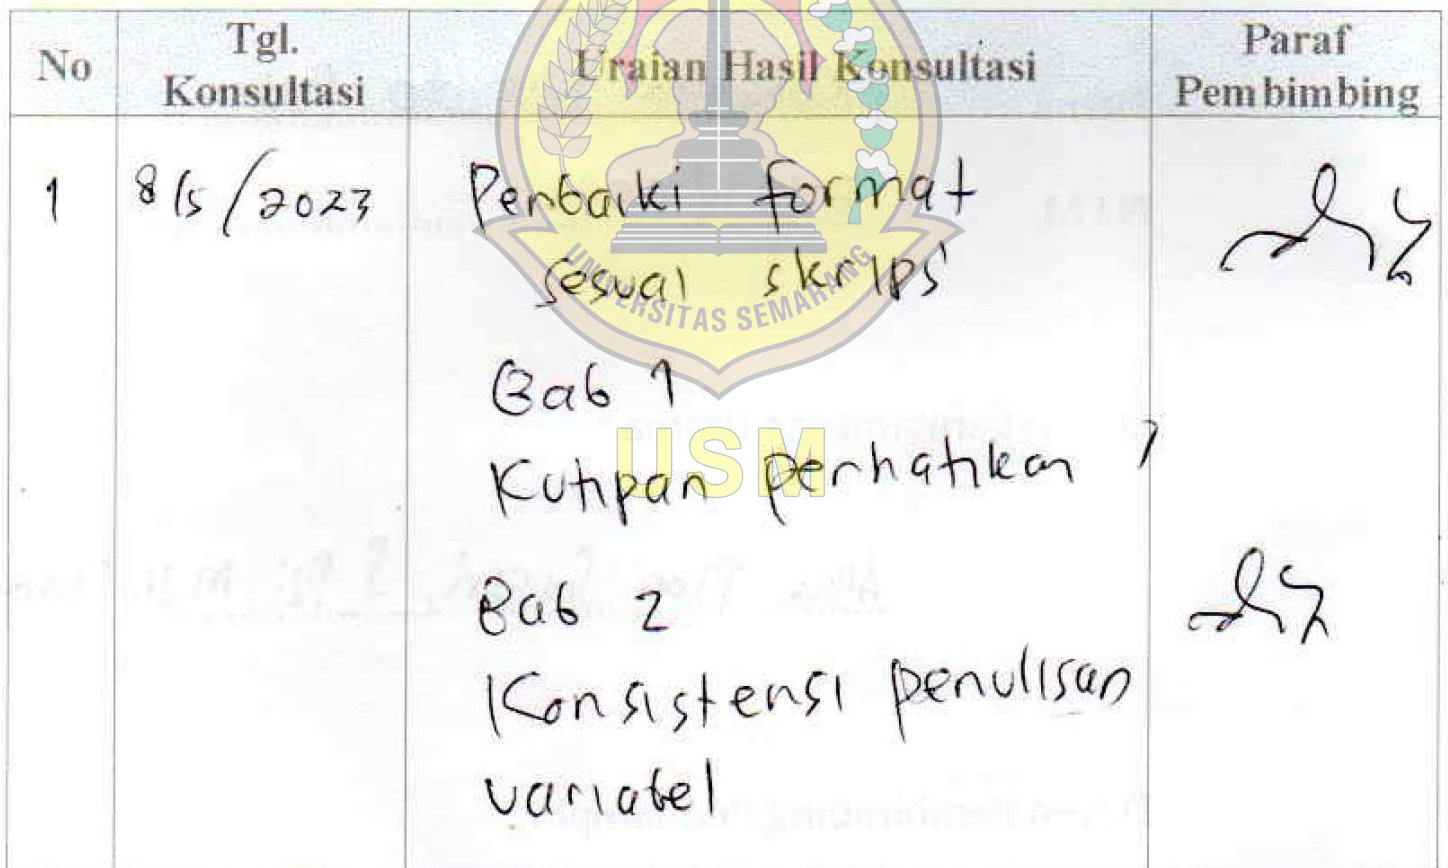 No
Tgl.
Konsultasi
Uraian Hasil Konsultasi
Paraf
Pembimbing
1
8/5/2023
Perbaiki format
sesuai skripsi
Bab 1
Kutipan perhatikan
Bab 2
Konsistensi penulisan
variabel
UNIVERSITAS SEMARANG
USM